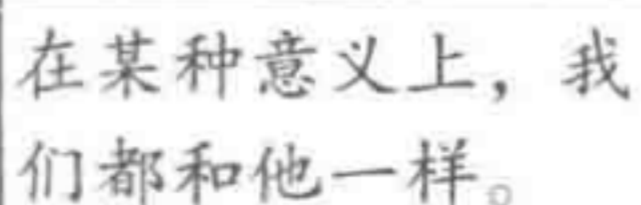 在某种意义上，我
们都和他一样。